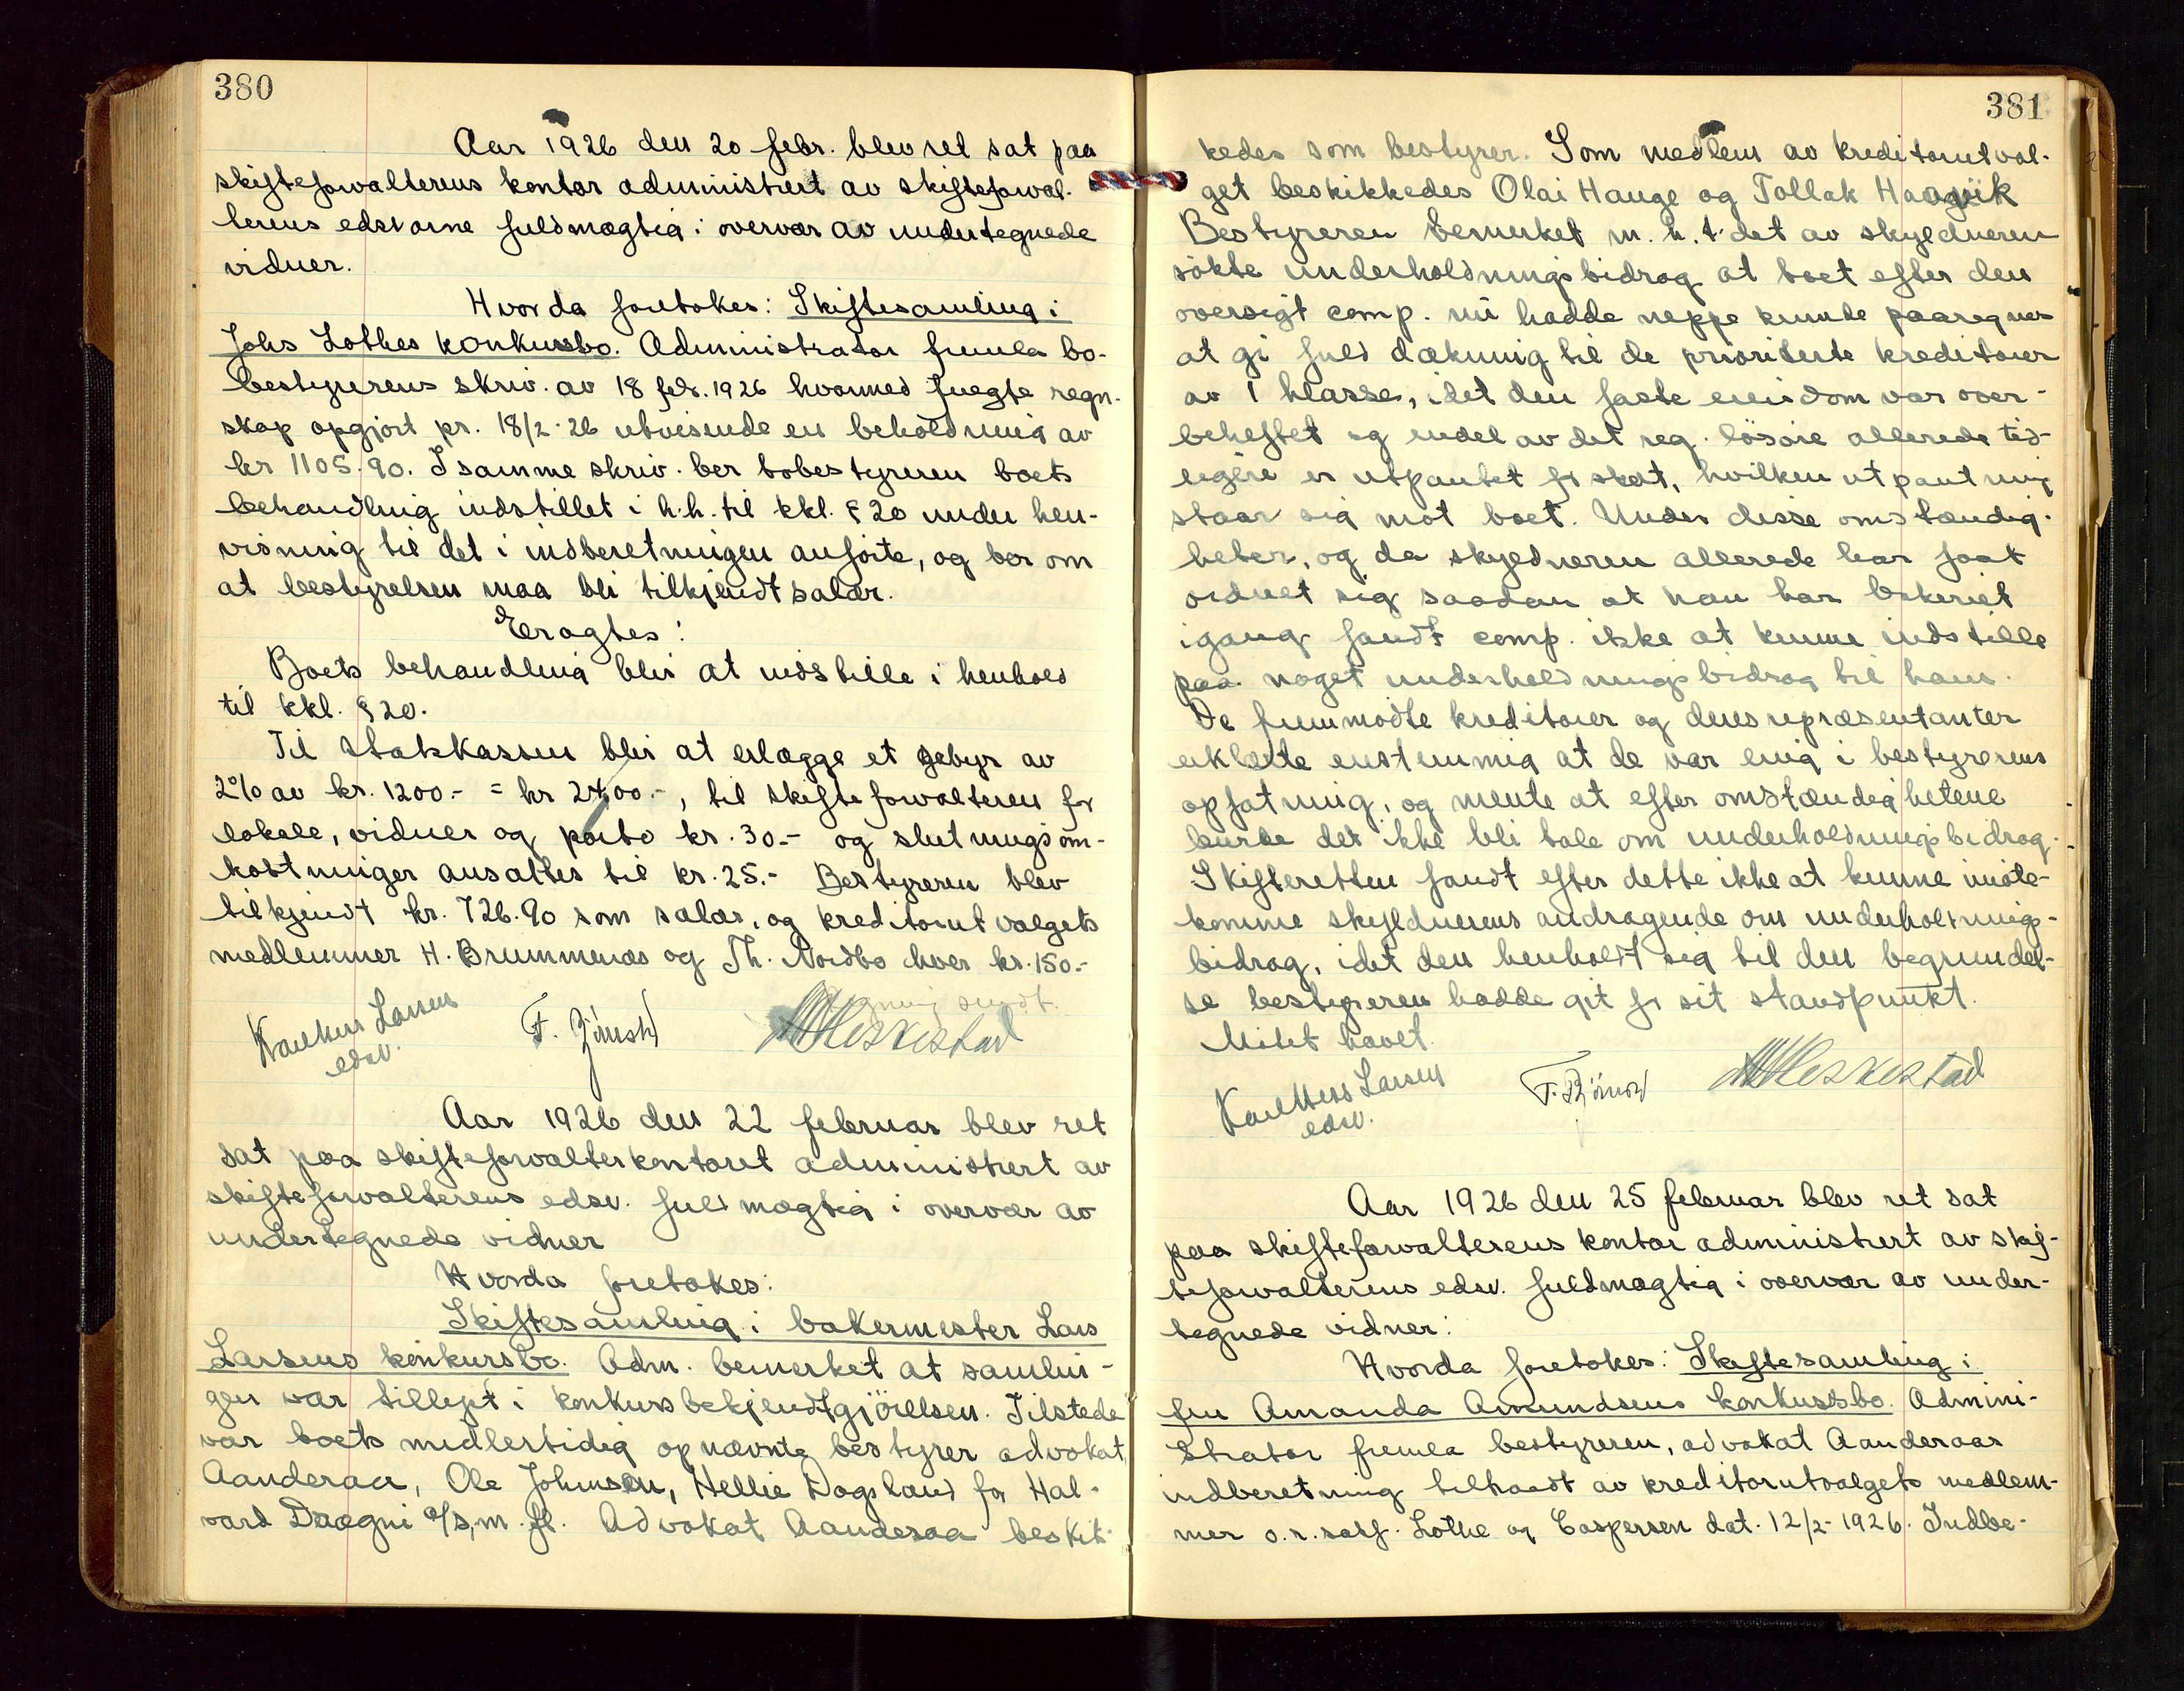 380
Aar 1926 den 20 febr. blev ret sat paa
skifteforvalterens kontor administrert av skifteforval-
terens edsvorne fuldmægtig i overvær av undertegnede
vidner.
Hvorda foretokes: Skiftesamling i
Johs Lothes konkursbo. Administrator fremla bo-
bestyrerens skriv. av 18 febr. 1926 hvormed fuegte regn-
skap opgjort pr. 18/2-26 utvisende en beholdning av
kr 1105.90. I samme skriv. ber bobestyreren boets
behandling indstillet i h.h. til kkl. § 20 under hen-
visning til det i indberetningen anførte, og ber om
at bestyrelsen maa bli tilkjendt salær.
Eragtes:
Boets behandling blir at indstille i henhold
til kkl. § 20.
Til Statskassen blir at erlægge et gebyr av
2% av kr. 1200.- = kr 24,00.-, til skifteforvalteren for
lokale, vidner og porto kr. 30.- og slutningsom-
kostninger ansattes til kr. 25.- Bestyreren blev
tilkjendt kr. 726.90 som salær, og kreditorutvalgets
medlemmer H. Brummenæs og Th. Nordbo hver kr. 150.-
Karl Larsen
edsv.
M Heskestad
Aar 1926 den 22 februar blev ret
sat paa skifteforvalterkontoret administrert av
skifteforvalterens edsv. fuldmægtig i overvær av
undertegnede vidner
Hvorda foretokes:
Skiftesamling i bakermester Lars
Larsens konkursbo. Adm. bemerket at samlin-
gen var tillyst i konkursbekjendtgjørelsen. Tilstede
var boets midlertidig opnævnte bestyrer advokat
Aanderaa, Ole Johnsen, Hellie Dagsland for Hal-
vard Daagni a/s, m. fl. Advokat Aanderaa beskik-
381
kedes som bestyrer. Som medlem av kreditorutval-
get beskikkedes Olai Hauge og Tollak Haavik
Bestyreren bemerket m. h. t. det av skyldneren
søkte underholdningsbidrag at boet efter den
oversigt comp. nu hadde neppe kunde paaregnes
at gi fuld dækning til de prioriterte kreditorer
av 1 klasse, idet den faste eiendom var over-
beheftet og endel av det reg. løsøre allerede tid-
ligere er utpantet for skat, hvilken utpantning
staar sig mot boet. Under disse omstændig-
heter, og da skyldneren allerede har faat
ordnet sig saadan at han har bakeriet
igang fandt comp. ikke at kunne indstille
paa noget underholdningsbidrag til ham.
De fremmødte kreditorer og deres repræsentanter
erklærte enstemmig at de var enig i bestyrerens
opfatning, og mente at efter omstændighetene
burde det ikke bli tale om underholdningsbidrag.
Skifteretten fandt efter dette ikke at kunne imøte-
komme skyldnerens andragende om underholdnings-
bidrag, idet den henholdt sig til den begrundel-
se bestyreren hadde git for sit standpunkt.
Møtet hævet.
Karl Larsen
edsv.
M Heskestad
Aar 1926 den 25 februar blev ret sat
paa skifteforvalterens kontor administrert av skif-
teforvalterens edsv. fuldmægtig i overvær av under-
tegnede vidner:
Hvorda foretokes: Skiftesamling i
fru Amanda Amundsens konkursbo. Admini-
strator fremla bestyreren, advokat Aanderaas
indberetning tiltraadt av kreditorutvalgets medlem-
mer o.r.sakf. Lothe og Caspersen dat. 12/2-1926. Indbe-